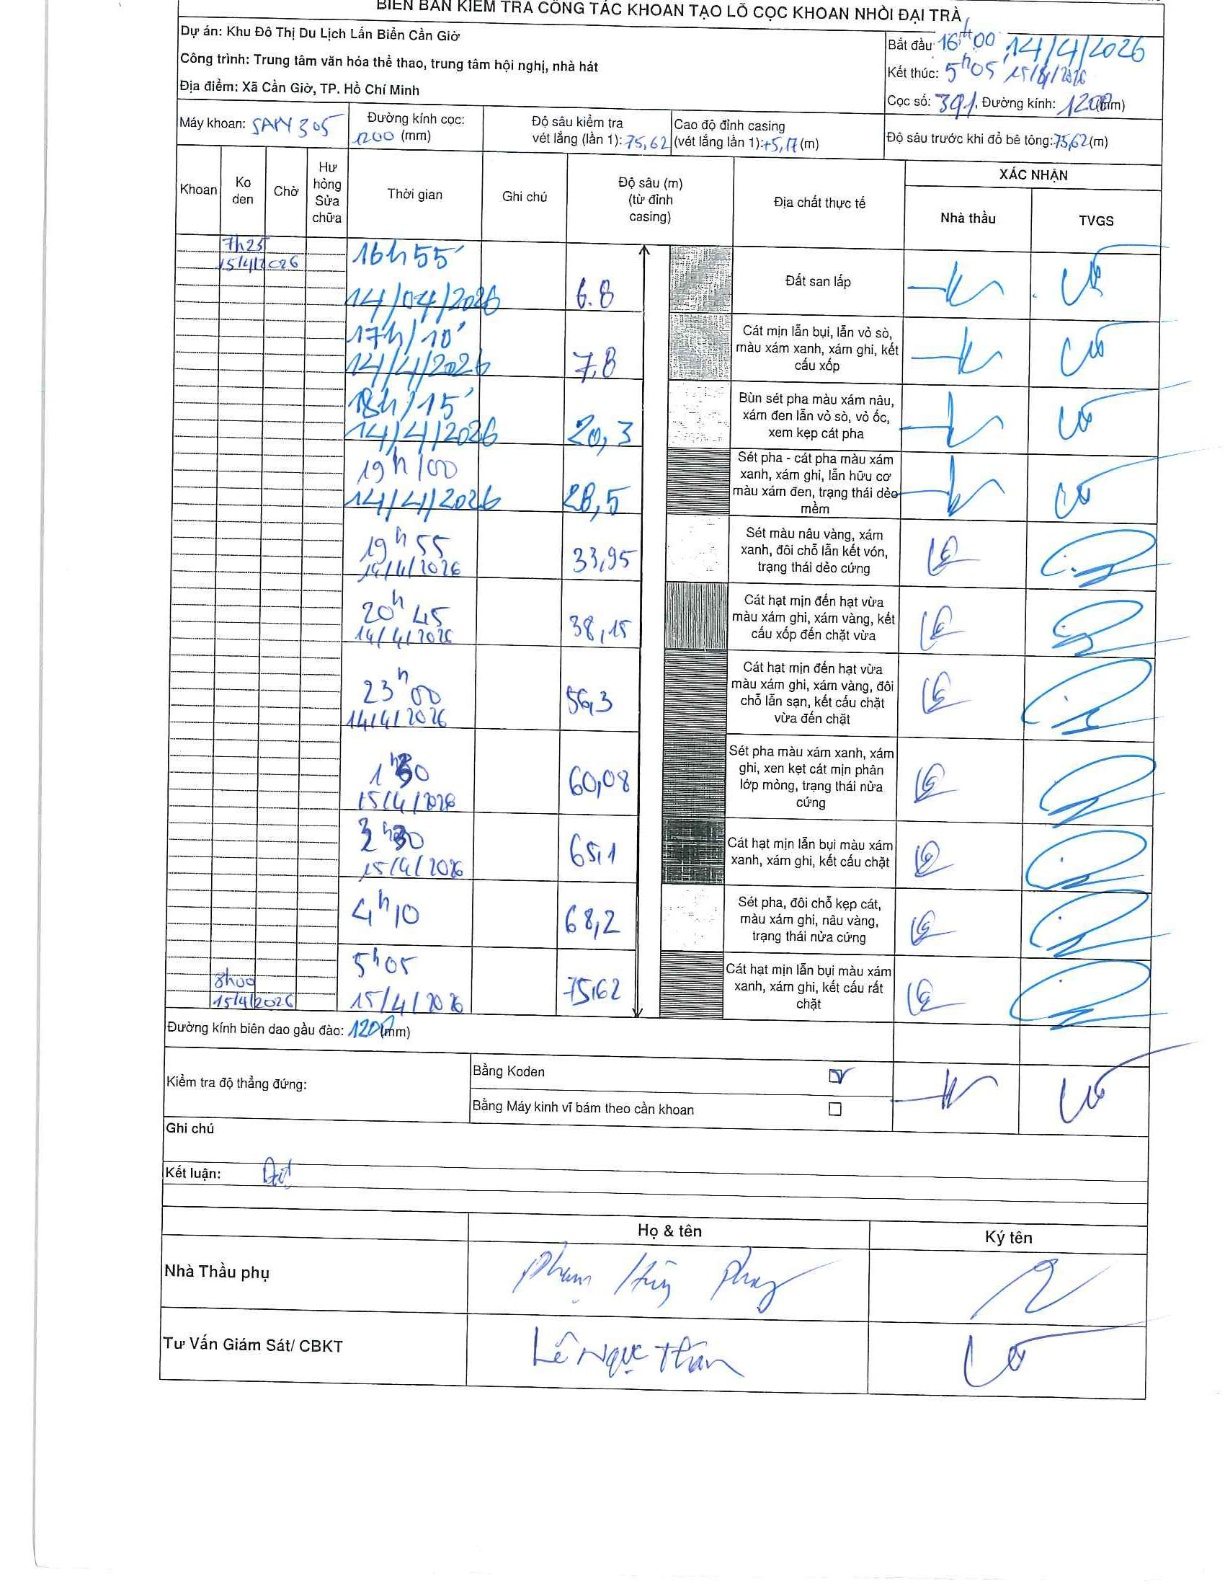 BIÊN BẢN KIỂM TRA CÔNG TÁC KHOAN TẠO LỖ CỌC KHOAN NHỒI ĐẠI TRÀ
Dự án: Khu Đô Thị Du Lịch Lấn Biển Cần Giờ
Công trình: Trung tâm văn hóa thể thao, trung tâm hội nghị, nhà hát
Địa điểm: Xã Cần Giờ, TP. Hồ Chí Minh
Bắt đầu: 16h00 14/4/2026
Kết thúc: 5h05 15/4/2026
Cọc số: 391, Đường kính: 1200(mm)
Máy khoan: SANY 305
Đường kính cọc:
1200 (mm)
Độ sâu kiểm tra
vét lắng (lần 1): 75,62
Cao độ đỉnh casing
(vét lắng lần 1): +5,17 (m)
Độ sâu trước khi đổ bê tông: 75,62 (m)
Khoan
Ko
den
Chờ
Hư
hỏng
Sửa
chữa
Thời gian
Ghi chú
Độ sâu (m)
(từ đỉnh
casing)
Địa chất thực tế
XÁC NHẬN
Nhà thầu
TVGS
7h25
15/4/2026
16h55'
14/04/2026
6.8
Đất san lấp
17h/10'
14/4/2026
7,8
Cát mịn lẫn bụi, lẫn vỏ sò,
màu xám xanh, xám ghi, kết
cấu xốp
18h/15'
14/4/2026
20,3
Bùn sét pha màu xám nâu,
xám đen lẫn vỏ sò, vỏ ốc,
xem kẹp cát pha
19h/00
14/4/2026
28,5
Sét pha - cát pha màu xám
xanh, xám ghi, lẫn hữu cơ
màu xám đen, trạng thái dẻo
mềm
19h55
14/4/2026
33,95
Sét màu nâu vàng, xám
xanh, đôi chỗ lẫn kết vón,
trạng thái dẻo cứng
20h45
14/4/2026
38,15
Cát hạt mịn đến hạt vừa
màu xám ghi, xám vàng, kết
cấu xốp đến chặt vừa
23h00
14/4/2026
56,3
Cát hạt mịn đến hạt vừa
màu xám ghi, xám vàng, đôi
chỗ lẫn sạn, kết cấu chặt
vừa đến chặt
1h30
15/4/2026
60,08
Sét pha màu xám xanh, xám
ghi, xen kẹt cát mịn phân
lớp mỏng, trạng thái nửa
cứng
15/4/2026
65,1
Cát hạt mịn lẫn bụi màu xám
xanh, xám ghi, kết cấu chặt
4h10
68,2
Sét pha, đôi chỗ kẹp cát,
màu xám ghi, nâu vàng,
trạng thái nửa cứng
8h00
15/4/2026
5h05
15/4/2026
75,62
Cát hạt mịn lẫn bụi màu xám
xanh, xám ghi, kết cấu rất
chặt
Đường kính biên dao gầu đào: 1200(mm)
Kiểm tra độ thẳng đứng:
Bằng Koden ☑
Bằng Máy kinh vĩ bám theo cần khoan ☐
Ghi chú
Kết luận: Đạt
Họ & tên
Ký tên
Nhà Thầu phụ
Phạm
Tư Vấn Giám Sát/ CBKT
Lê Ngọc